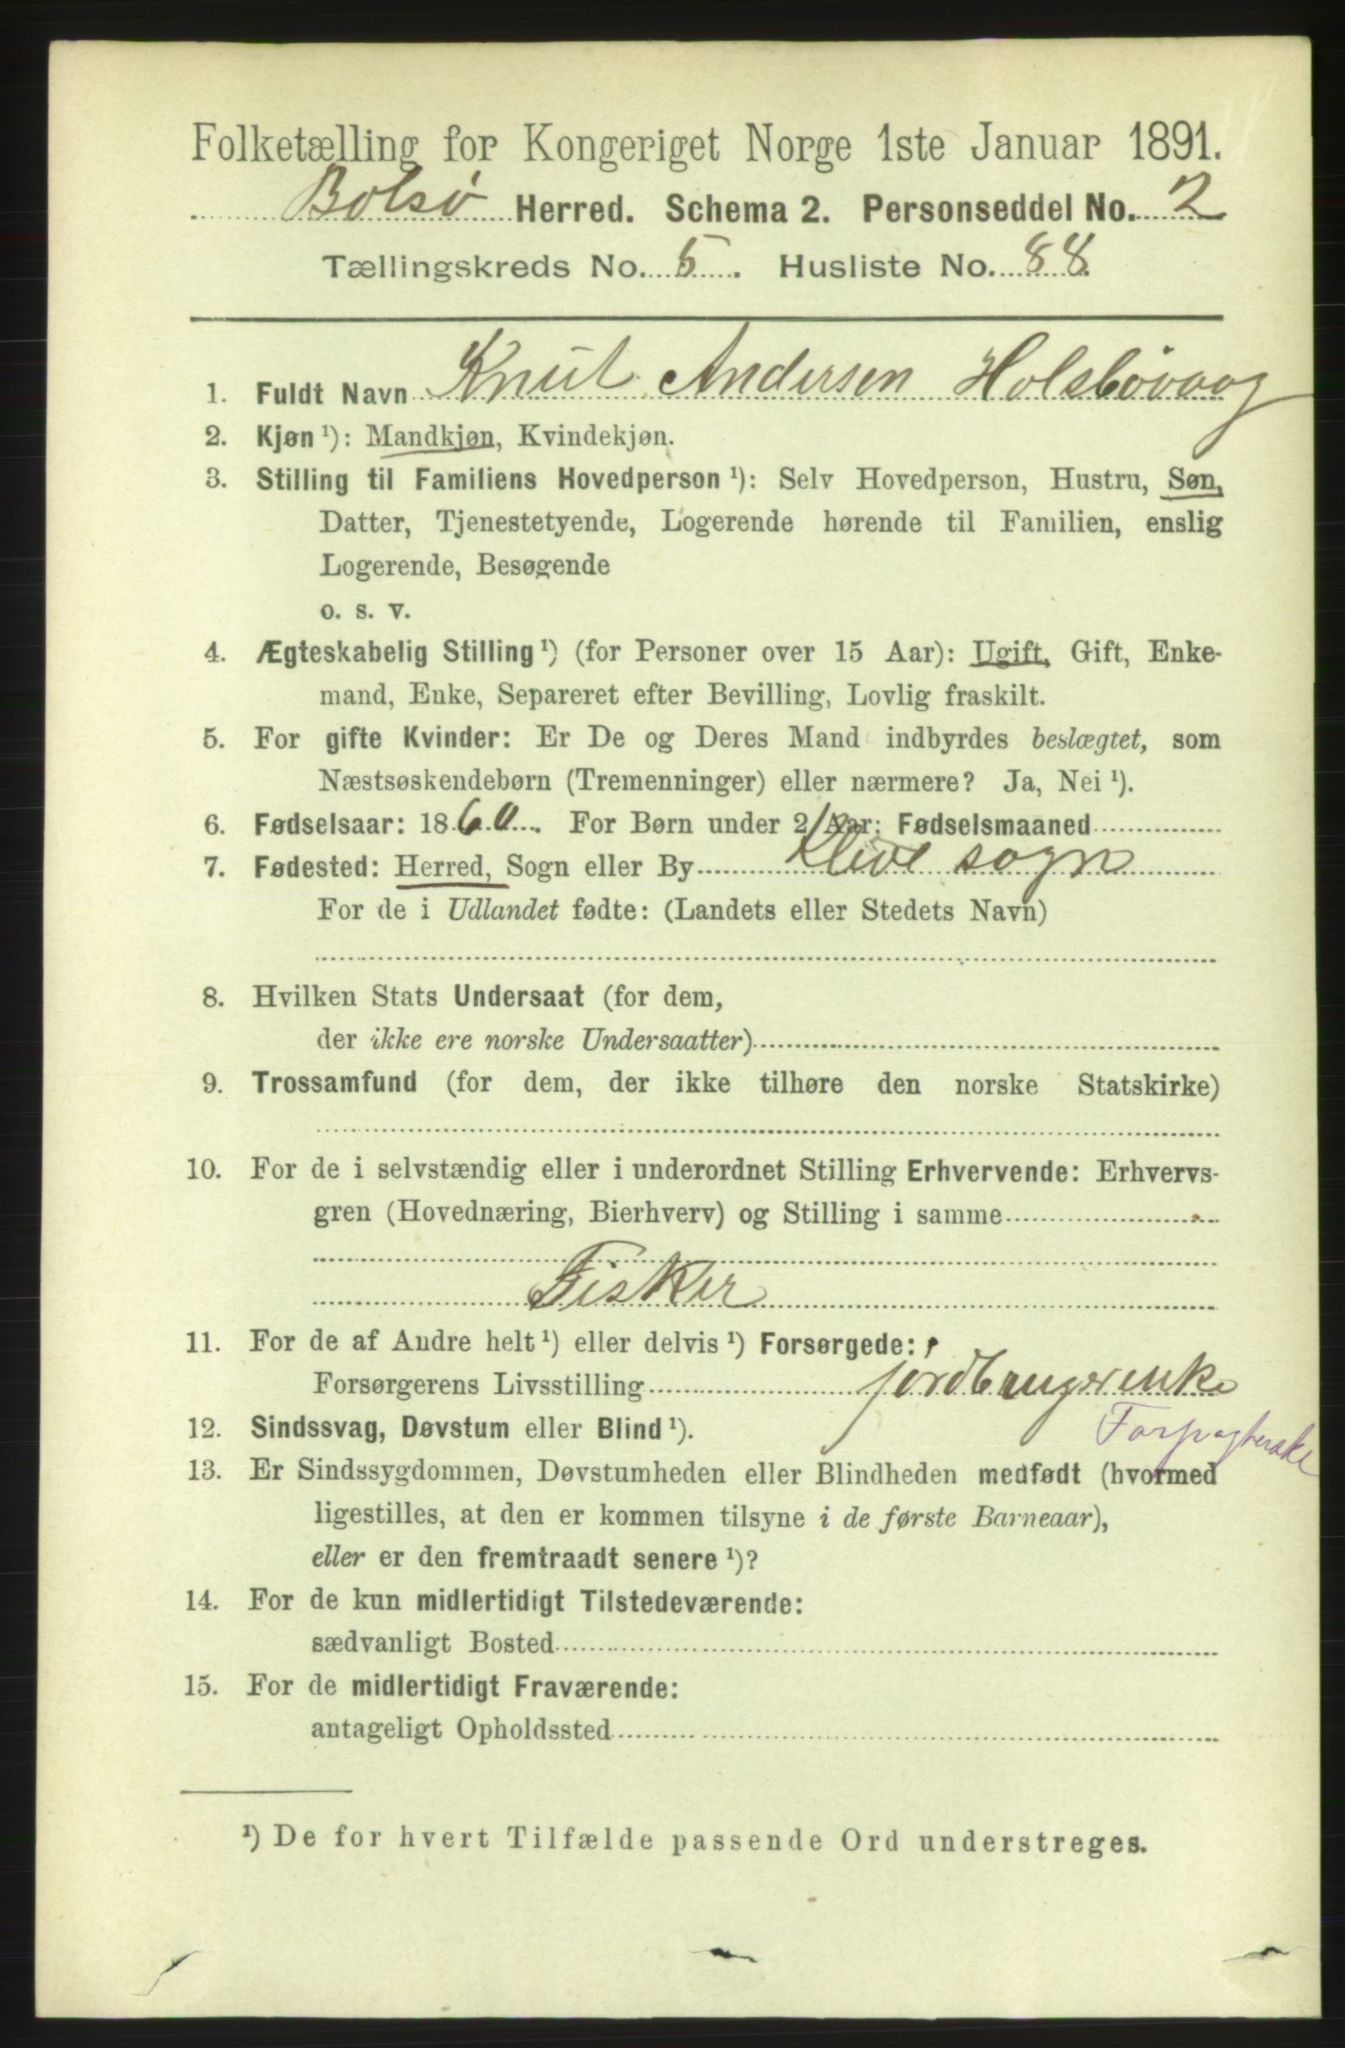 Folketælling for Kongeriget Norge 1ste Januar 1891.
Bolsø Herred. Schema 2. Personseddel No. 2
Tællingskreds No. 5. Husliste No. 88
1. Fuldt Navn Knut Andersen Holsbøvaag
2. Kjøn ¹): Mandkjøn, Kvindekjøn.
3. Stilling til Familiens Hovedperson ¹): Selv Hovedperson, Hustru, Søn,
Datter, Tjenestetyende, Logerende hørende til Familien, enslig
Logerende, Besøgende
o. s. v.
4. Ægteskabelig Stilling ¹) (for Personer over 15 Aar): Ugift, Gift, Enke-
mand, Enke, Separeret efter Bevilling, Lovlig fraskilt.
5. For gifte Kvinder: Er De og Deres Mand indbyrdes beslægtet, som
Næstsøskendebørn (Tremenninger) eller nærmere? Ja, Nei ¹).
6. Fødselsaar: 1860. For Børn under 2 Aar: Fødselsmaaned
7. Fødested: Herred, Sogn eller By Kleive sogn
For de i Udlandet fødte: (Landets eller Stedets Navn)
8. Hvilken Stats Undersaat (for dem,
der ikke ere norske Undersaatter)
9. Trossamfund (for dem, der ikke tilhøre den norske Statskirke)
10. For de i selvstændig eller i underordnet Stilling Erhvervende: Erhvervs-
gren (Hovednæring, Bierhverv) og Stilling i samme
Fisker
11. For de af Andre helt ¹) eller delvis ¹) Forsørgede:
Forsørgerens Livsstilling jordbrugsenke
Forpagterske
12. Sindssvag, Døvstum eller Blind ¹).
13. Er Sindssygdommen, Døvstumheden eller Blindheden medfødt (hvormed
ligestilles, at den er kommen tilsyne i de første Barneaar),
eller er den fremtraadt senere ¹)?
14. For de kun midlertidigt Tilstedeværende:
sædvanligt Bosted
15. For de midlertidigt Fraværende:
antageligt Opholdssted
¹) De for hvert Tilfælde passende Ord understreges.